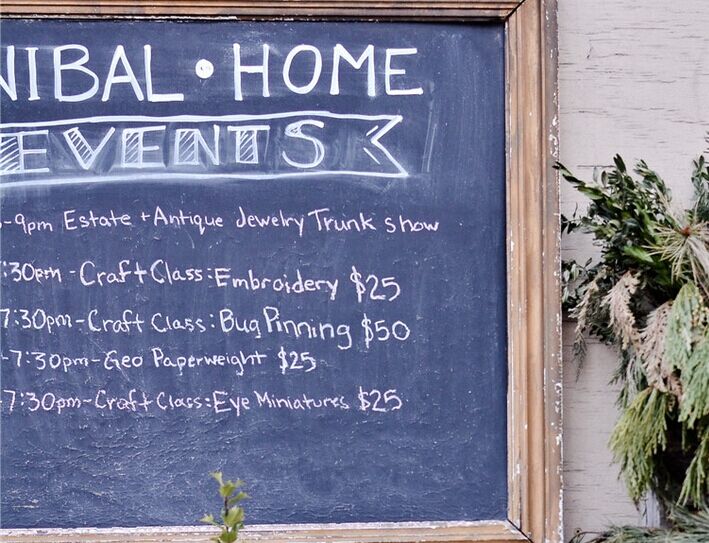 NIBAL • HOME
EVENTS
-9pm Estate + Antique Jewelry Trunk show
:30pm - Craft Class: Embroidery $25
7:30pm - Craft Class: Bug Pinning $50
-7:30pm - Geo Paperweight $25
7:30pm - Craft Class: Eye Miniatures $25